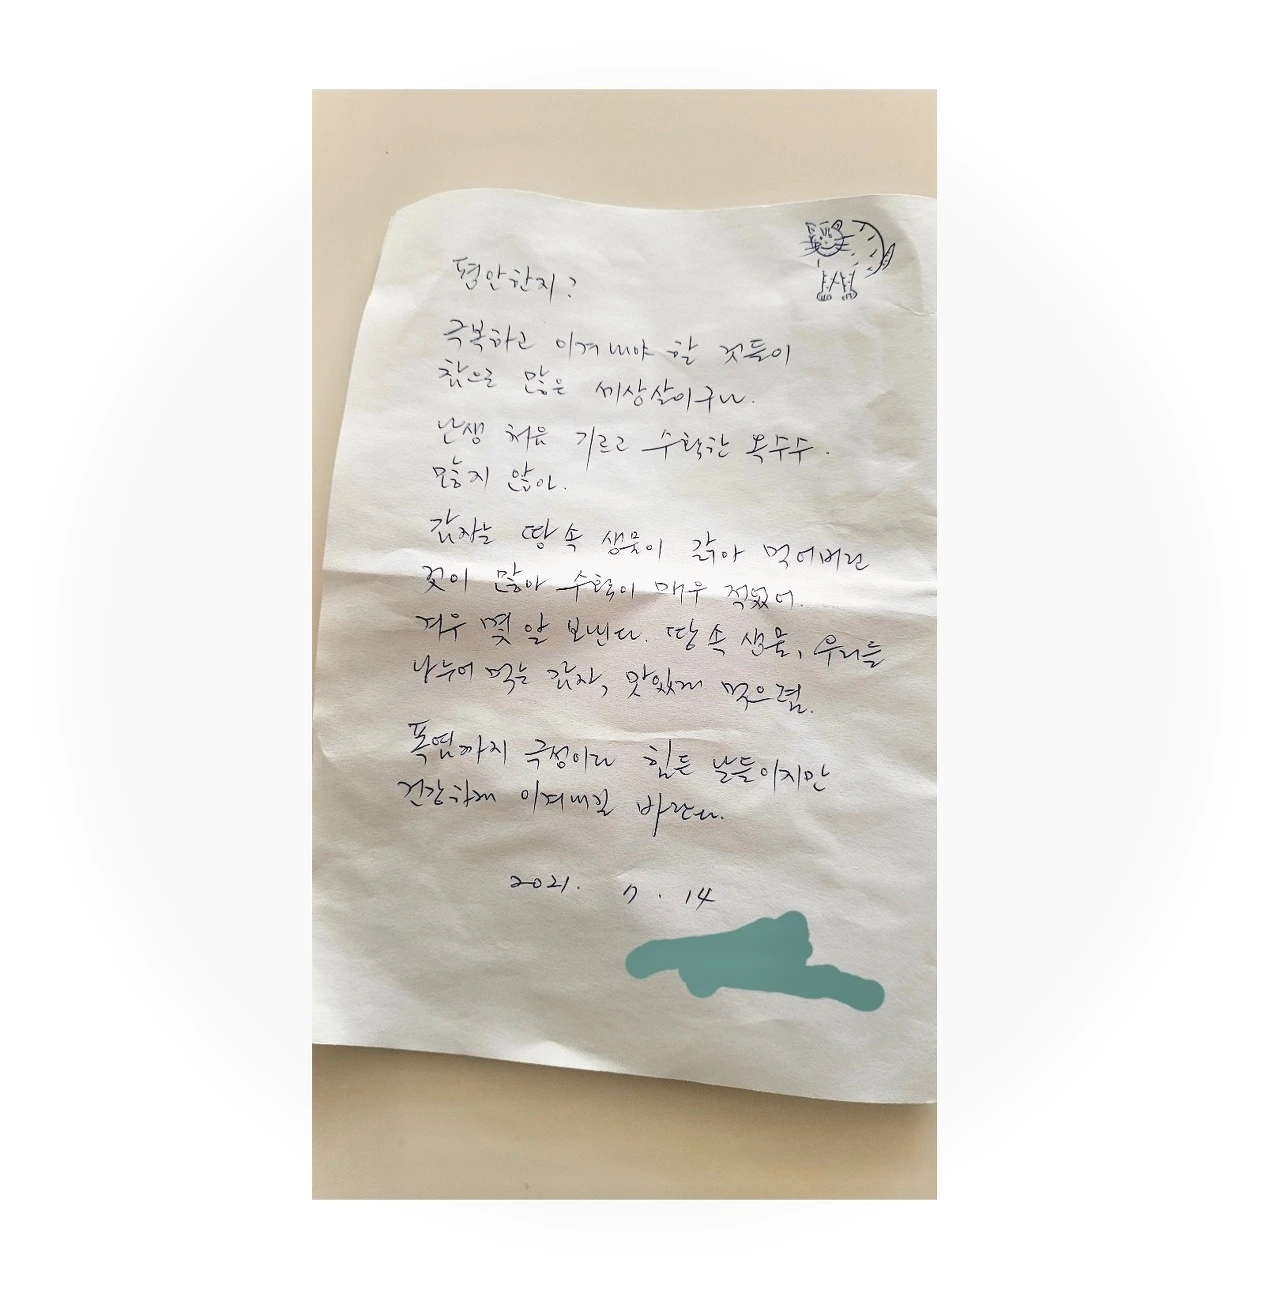 평안한지?
극복하고 이겨내야 할 것들이
참으로 많은 세상살이구나.
난생 처음 기르고 수확한 옥수수.
많지 않아.
감자는 땅속 생물이 갉아 먹어버린
것이 많아 수확이 매우 적었어.
겨우 몇 알 보낸다. 땅속 생물, 우리들
나누어 먹는 감자, 맛있게 먹으렴.
폭염까지 극성이라 힘든 날들이지만
건강하게 이겨내길 바란다.
2021. 7. 14